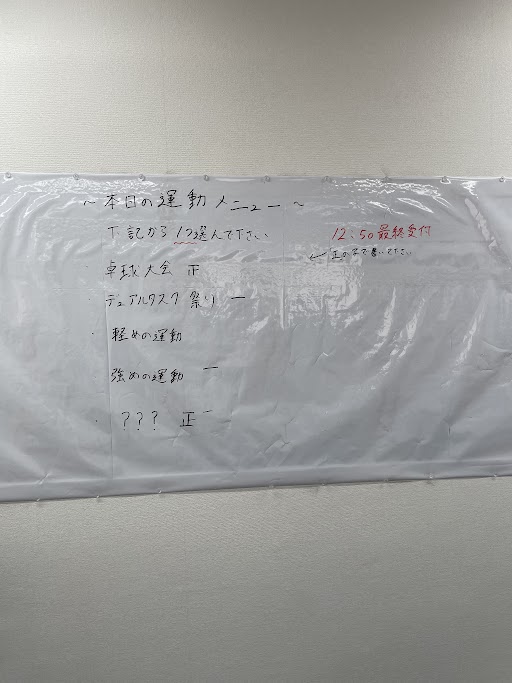 ~本日の運動メニュー~
下記から1つ選んで下さい
12:50最終受付
←正の字で書いて下さい
・卓球大会 正
・デュアルタスク祭り 一
・軽めの運動
・強めの運動 一
・??? 正一